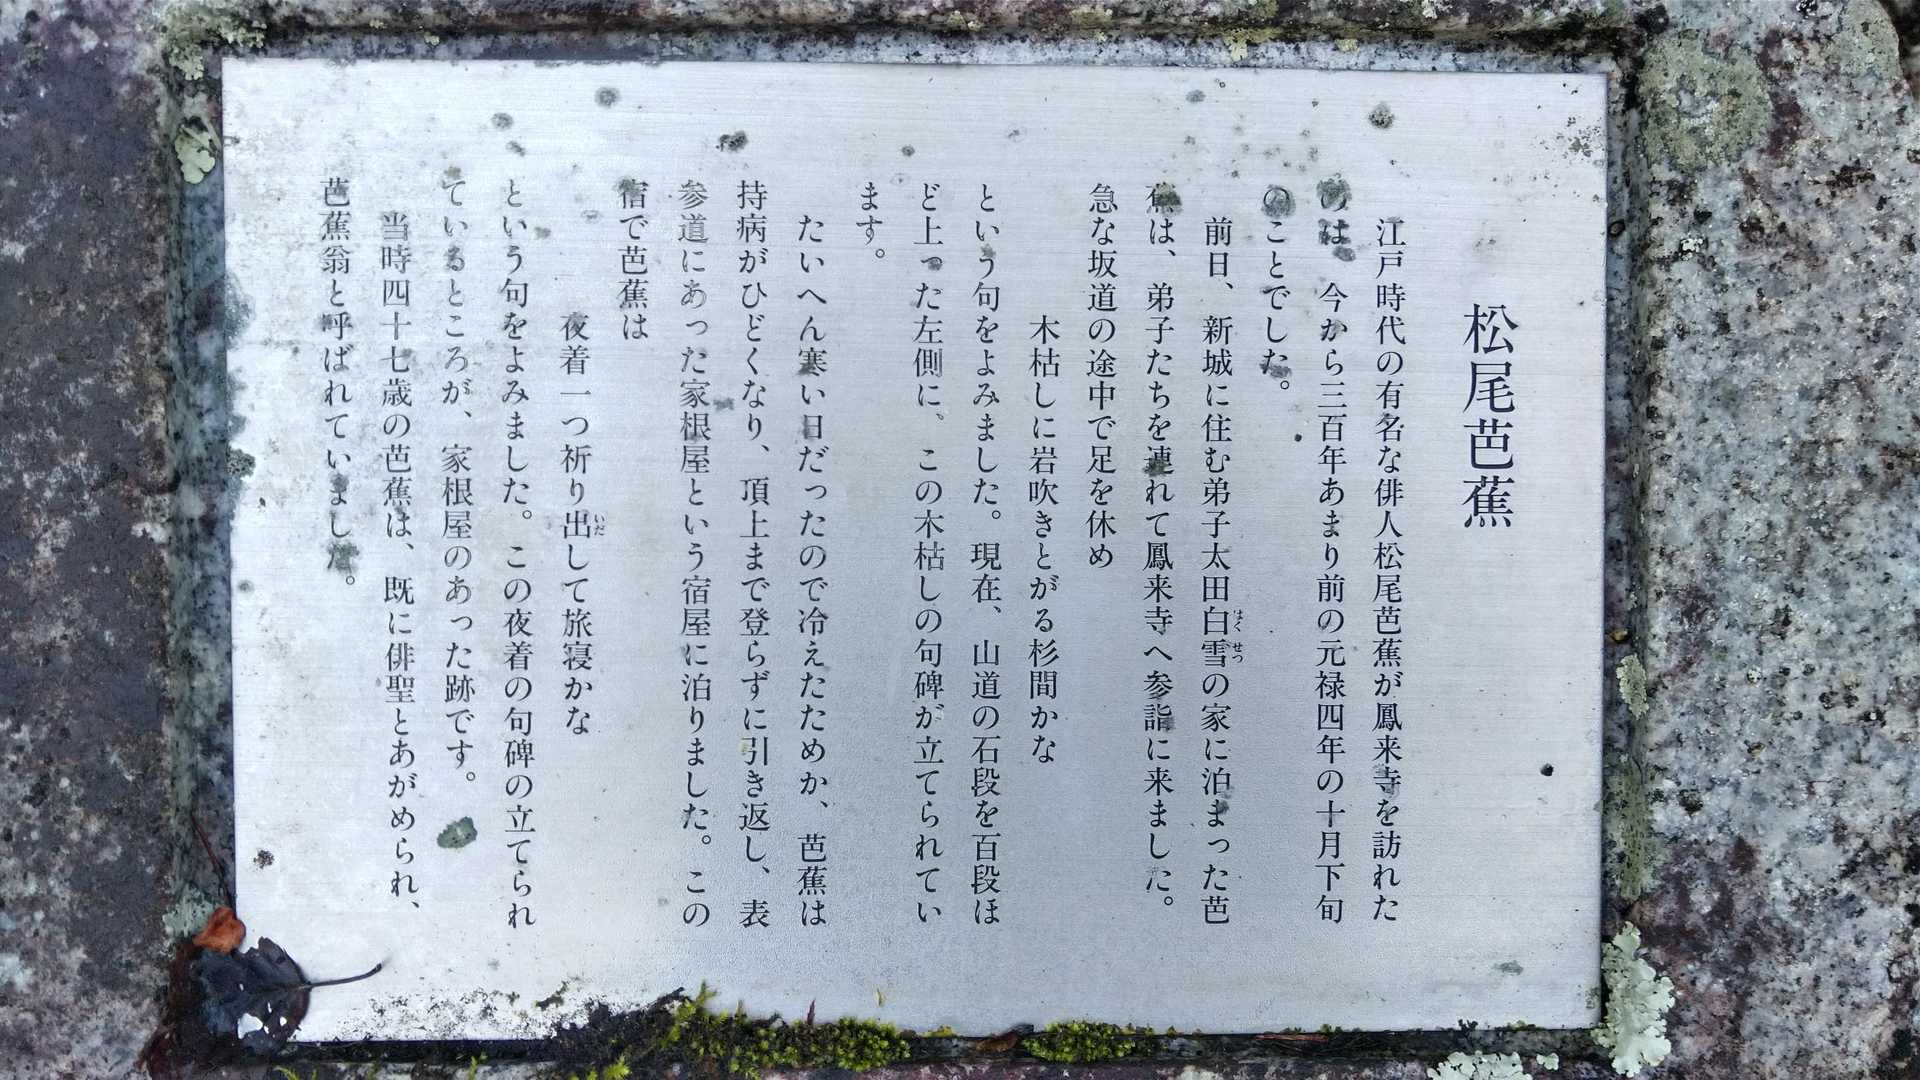 松尾芭蕉
江戸時代の有名な俳人松尾芭蕉が鳳来寺を訪れた
のは、今から三百年あまり前の元禄四年の十月下旬
のことでした。
前日、新城に住む弟子太田白雪の家に泊まった芭
はくせつ
蕉は、弟子たちを連れて鳳来寺へ参詣に来ました。
急な坂道の途中で足を休め
木枯しに岩吹きとがる杉間かな
という句をよみました。現在、山道の石段を百段ほ
ど上った左側に、この木枯しの句碑が立てられてい
ます。
たいへん寒い日だったので冷えたためか、芭蕉は
持病がひどくなり、頂上まで登らずに引き返し、表
参道にあった家根屋という宿屋に泊りました。この
宿で芭蕉は
夜着一つ祈り出して旅寝かな
いだ
という句をよみました。この夜着の句碑の立てられ
ているところが、家根屋のあった跡です。
当時四十七歳の芭蕉は、既に俳聖とあがめられ、
芭蕉翁と呼ばれていました。